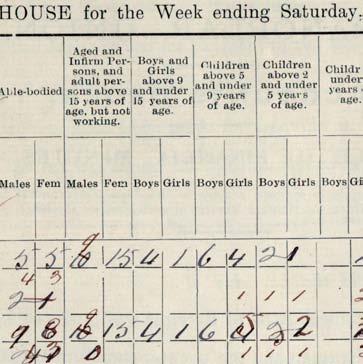 HOUSE for the Week ending Saturday,
Able-bodied
Aged and
Infirm Per-
sons, and
adult per-
sons above
15 years of
age, but not
working.
Boys and
Girls
above 9
and under
15 years of
age.
Children
above 5
and under
9 years
of age.
Children
above 2
and under
5 years
of age.
Childr
under
years
age
Males Fem Males Fem Boys Girls Boys Girls Boys Girls Boys Gi
9
5 5 10 15 4 1 6 4 2 1
4 3
2 1 1 1 1
9
8 10 15 4 1 6 2